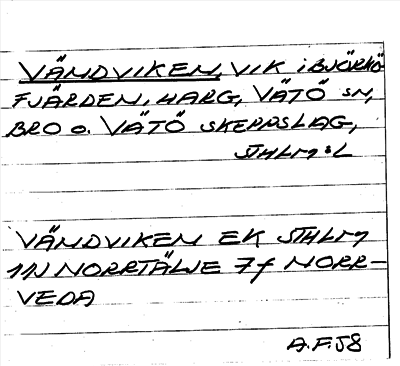 VÄNDVIKEN, VIK i BJÖRKÖ-
FJÄRDEN, HARG, VÄTÖ SN,
BRO o. VÄTÖ SKEPPSLAG,
STHLMS L
VÄNDVIKEN EK STHLM
11N NORRTÄLJE 7f NORR-
VEDA
A.F. 58